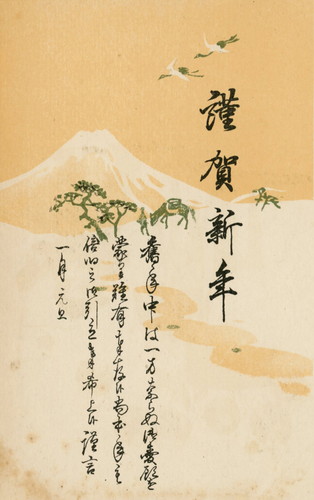 謹賀新年
舊年中は一方ならぬ御愛顧を
蒙り難有奉存候尚本年も
倍旧之御引立希上候謹言
一月元旦